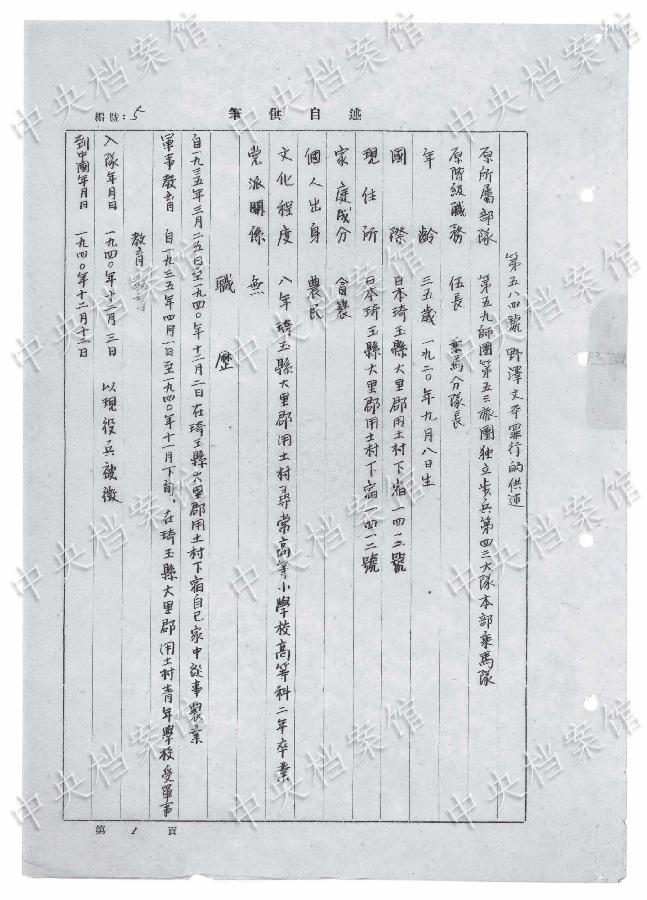 述自供筆
編號:5
第五八四號 野澤文平罪行的供述
原所屬部隊 第五九師團第五三旅團独立步兵第四三大隊本部乘馬隊
原階級職務 伍長 乘馬分隊長
年齡 三五歲 一九二〇年九月八日生
國際 日本琦玉縣大里郡用土村下宿一四一二號
現住所 日本琦玉縣大里郡用土村下宿一四一二號
家庭成分 貧農
個人出身 農民
文化程度 八年琦玉縣大里郡用土村尋常高等小學校高等科二年卒業
党派關係 無
職歷
自一九三五年三月二五日至一九四〇年十二月二日在琦玉縣大里郡用土村下宿自己家中從事農業
軍事教育 自一九三五年四月一日至一九四〇年十一月下旬,在琦玉縣大里郡用土村青年學校受軍事
教育
入隊年月日 一九四〇年十二月三日 以現役兵被徵
到中國年月日 一九四〇年十二月十二日
第1頁
中央档案馆